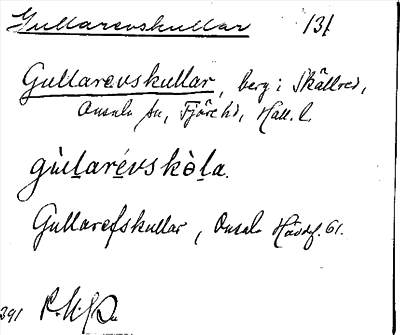 Gullarevskullar 131
Gullarevskullar, berg i Skällred,
Onsala sn, Fjäre hd, Hall. l.
gùl̲arévskòl̲a.
Gullarefskullar, Onsala Häradsk. 61.
291